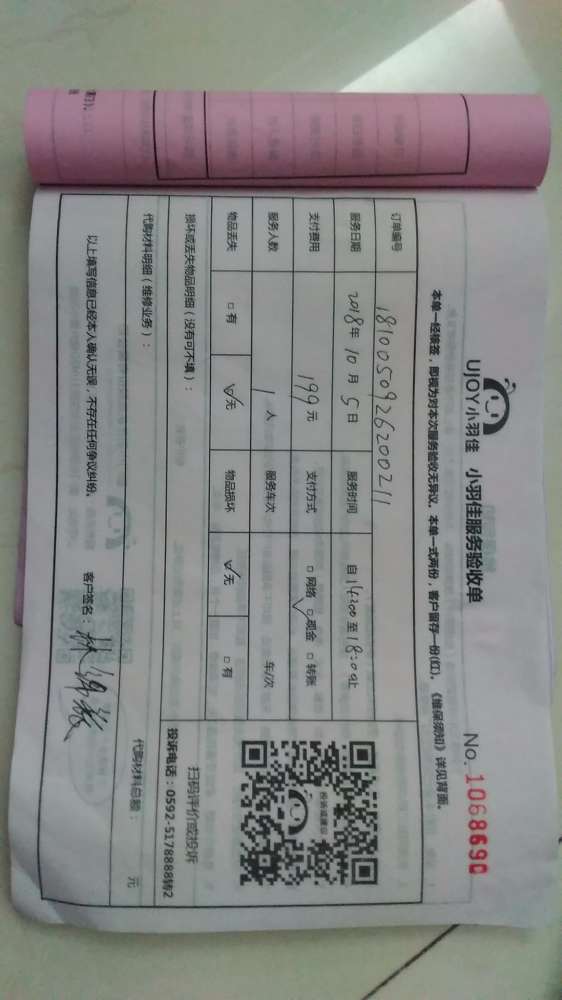 UJOY小羽佳 小羽佳服务验收单 No. 1068690
本单一经核签，即视为对本次服务验收无异议。本单一式两份，客户留存一份(红)。《维保须知》详见背面。
订单编号 181005092620021
服务日期 2018年 10月 5日 服务时间 自 14:00 至 18:00止
支付费用 199元 支付方式 □ 网络 ☑ 现金 □ 转账
服务人数 1 人 服务车次 车/次
物品丢失 □ 有 ☑ 无 物品损坏 ☑ 无 □ 有
投诉或建议
扫码评价或投诉
投诉电话：0592-5178888转2
损坏或丢失物品明细（没有可不填）：
代购材料明细（维修业务）： 代购材料总额： 元
以上填写信息已经本人确认无误，不存在任何争议纠纷。 客户签名：